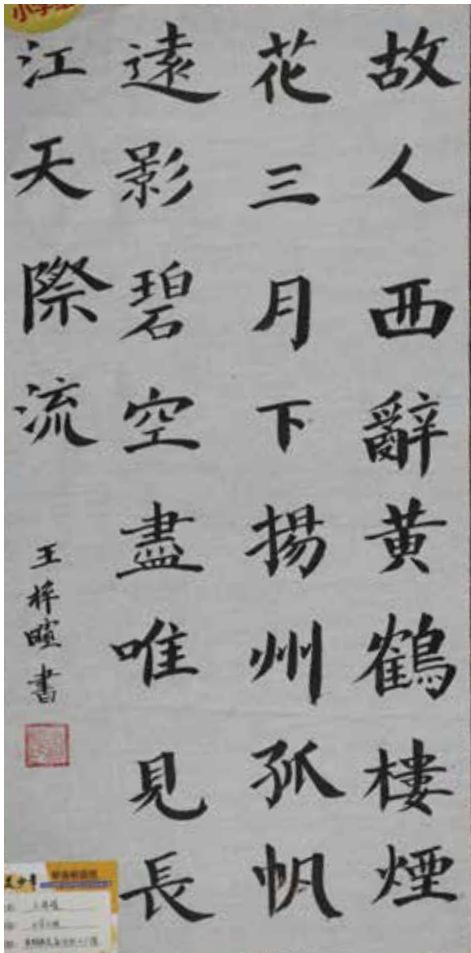 故人西辭黄鶴樓煙
花三月下揚州孤帆
遠影碧空盡唯見長
江天際流
王梓暄書